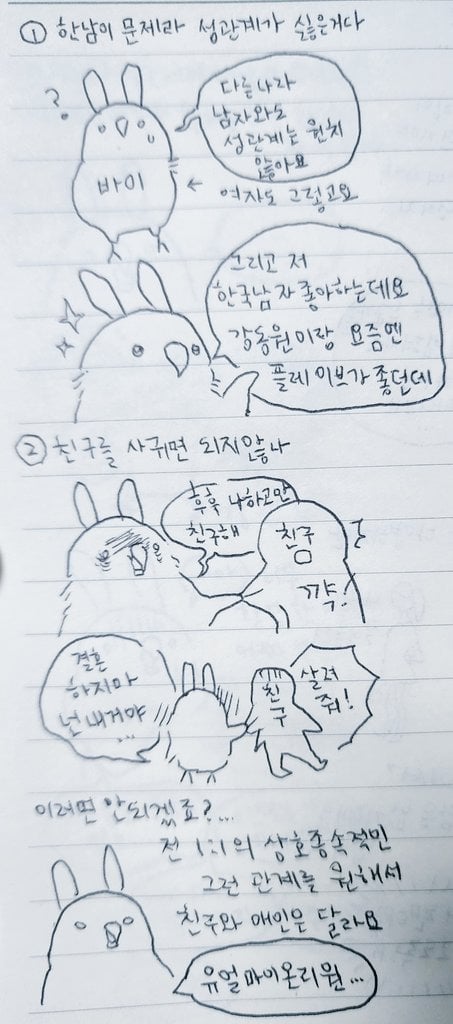 ① 한남이 문제라 성관계가 싫은거다
?
다른나라
남자와도
성관계는 원치
않아요
바이
← 여자도 그렇고요
그리고 저
한국남자 좋아하는데요
강동원이랑 요즘엔
플레이브가 좋던데
② 친구를 사귀면 되지않나
후훅 나하고만
친구해
친구
꺅!
결혼
하지마
넌 내거야
...
친구
살려
줘!
이러면 안되겠죠?...
전 1:1의 상호종속적인
그런 관계를 원해서
친구와 애인은 달라요
유얼마이온리원...